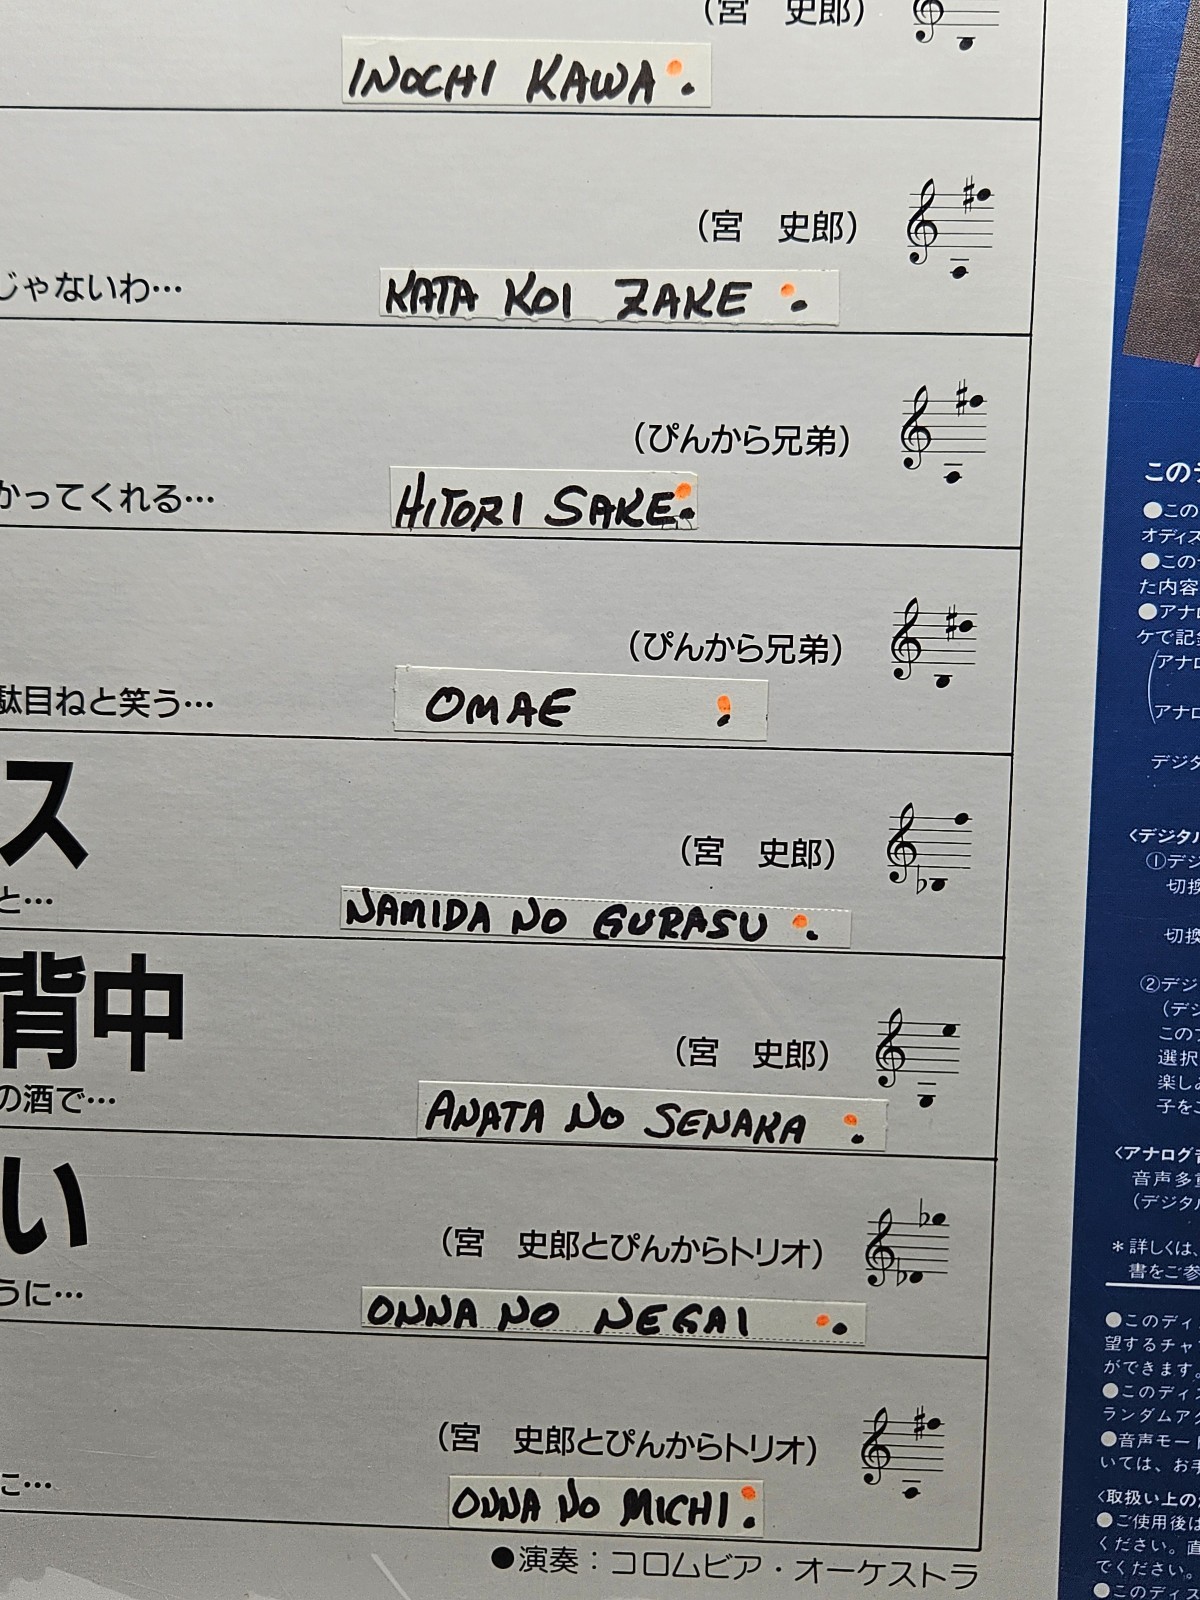 (宮 史郎)
INOCHI KAWA
(宮 史郎)
じゃないわ…
KATA KOI ZAKE
(ぴんから兄弟)
かってくれる…
HITORI SAKE
(ぴんから兄弟)
駄目ねと笑う…
OMAE
ス
(宮 史郎)
と…
NAMIDA NO GURASU
背中
(宮 史郎)
の酒で…
ANATA NO SENAKA
い
(宮 史郎とぴんからトリオ)
うに…
ONNA NO NEGAI
(宮 史郎とぴんからトリオ)
こ…
ONNA NO MICHI
●演奏：コロムビア・オーケストラ
この
●この
オディス
●この
た内容
●アナロ
ケで記
(アナロ
アナロ
デジタ
〈デジタル
①デジ
切換
切換
②デジ
(デジ
この
選択
楽し
子を
〈アナログ音
音声多重
(デジタル
＊詳しくは、
書をご参
●このディ
望するチャ
ができます。
●このディス
ランダムアク
●音声モード
いては、お手
〈取扱い上の
●ご使用後は
ください。直
でください。
●このディス